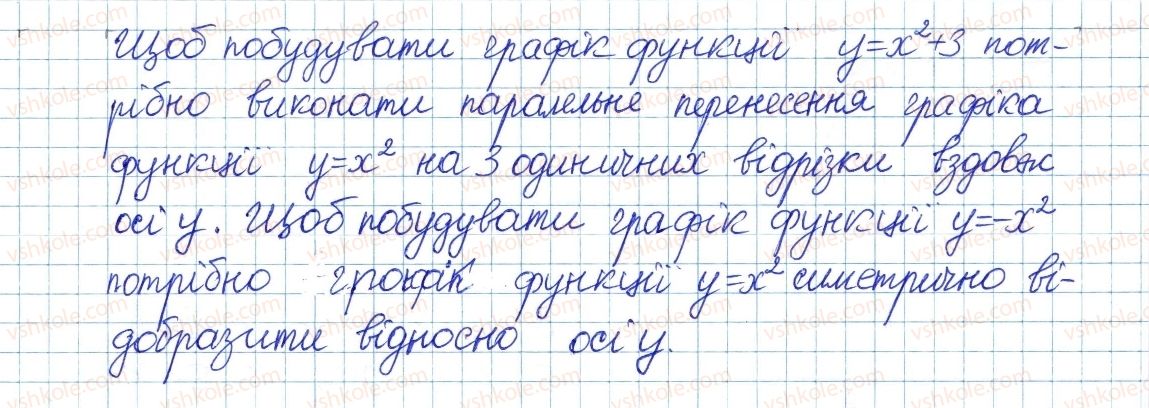 Щоб побудувати графік функції y=x²+3 пот-
рібно виконати паралельне перенесення графіка
функції y=x² на 3 одиничних відрізки вздовж
осі y. Щоб побудувати графік функції y=-x²
потрібно графік функції y=x² симетрично ві-
добразити відносно осі y.